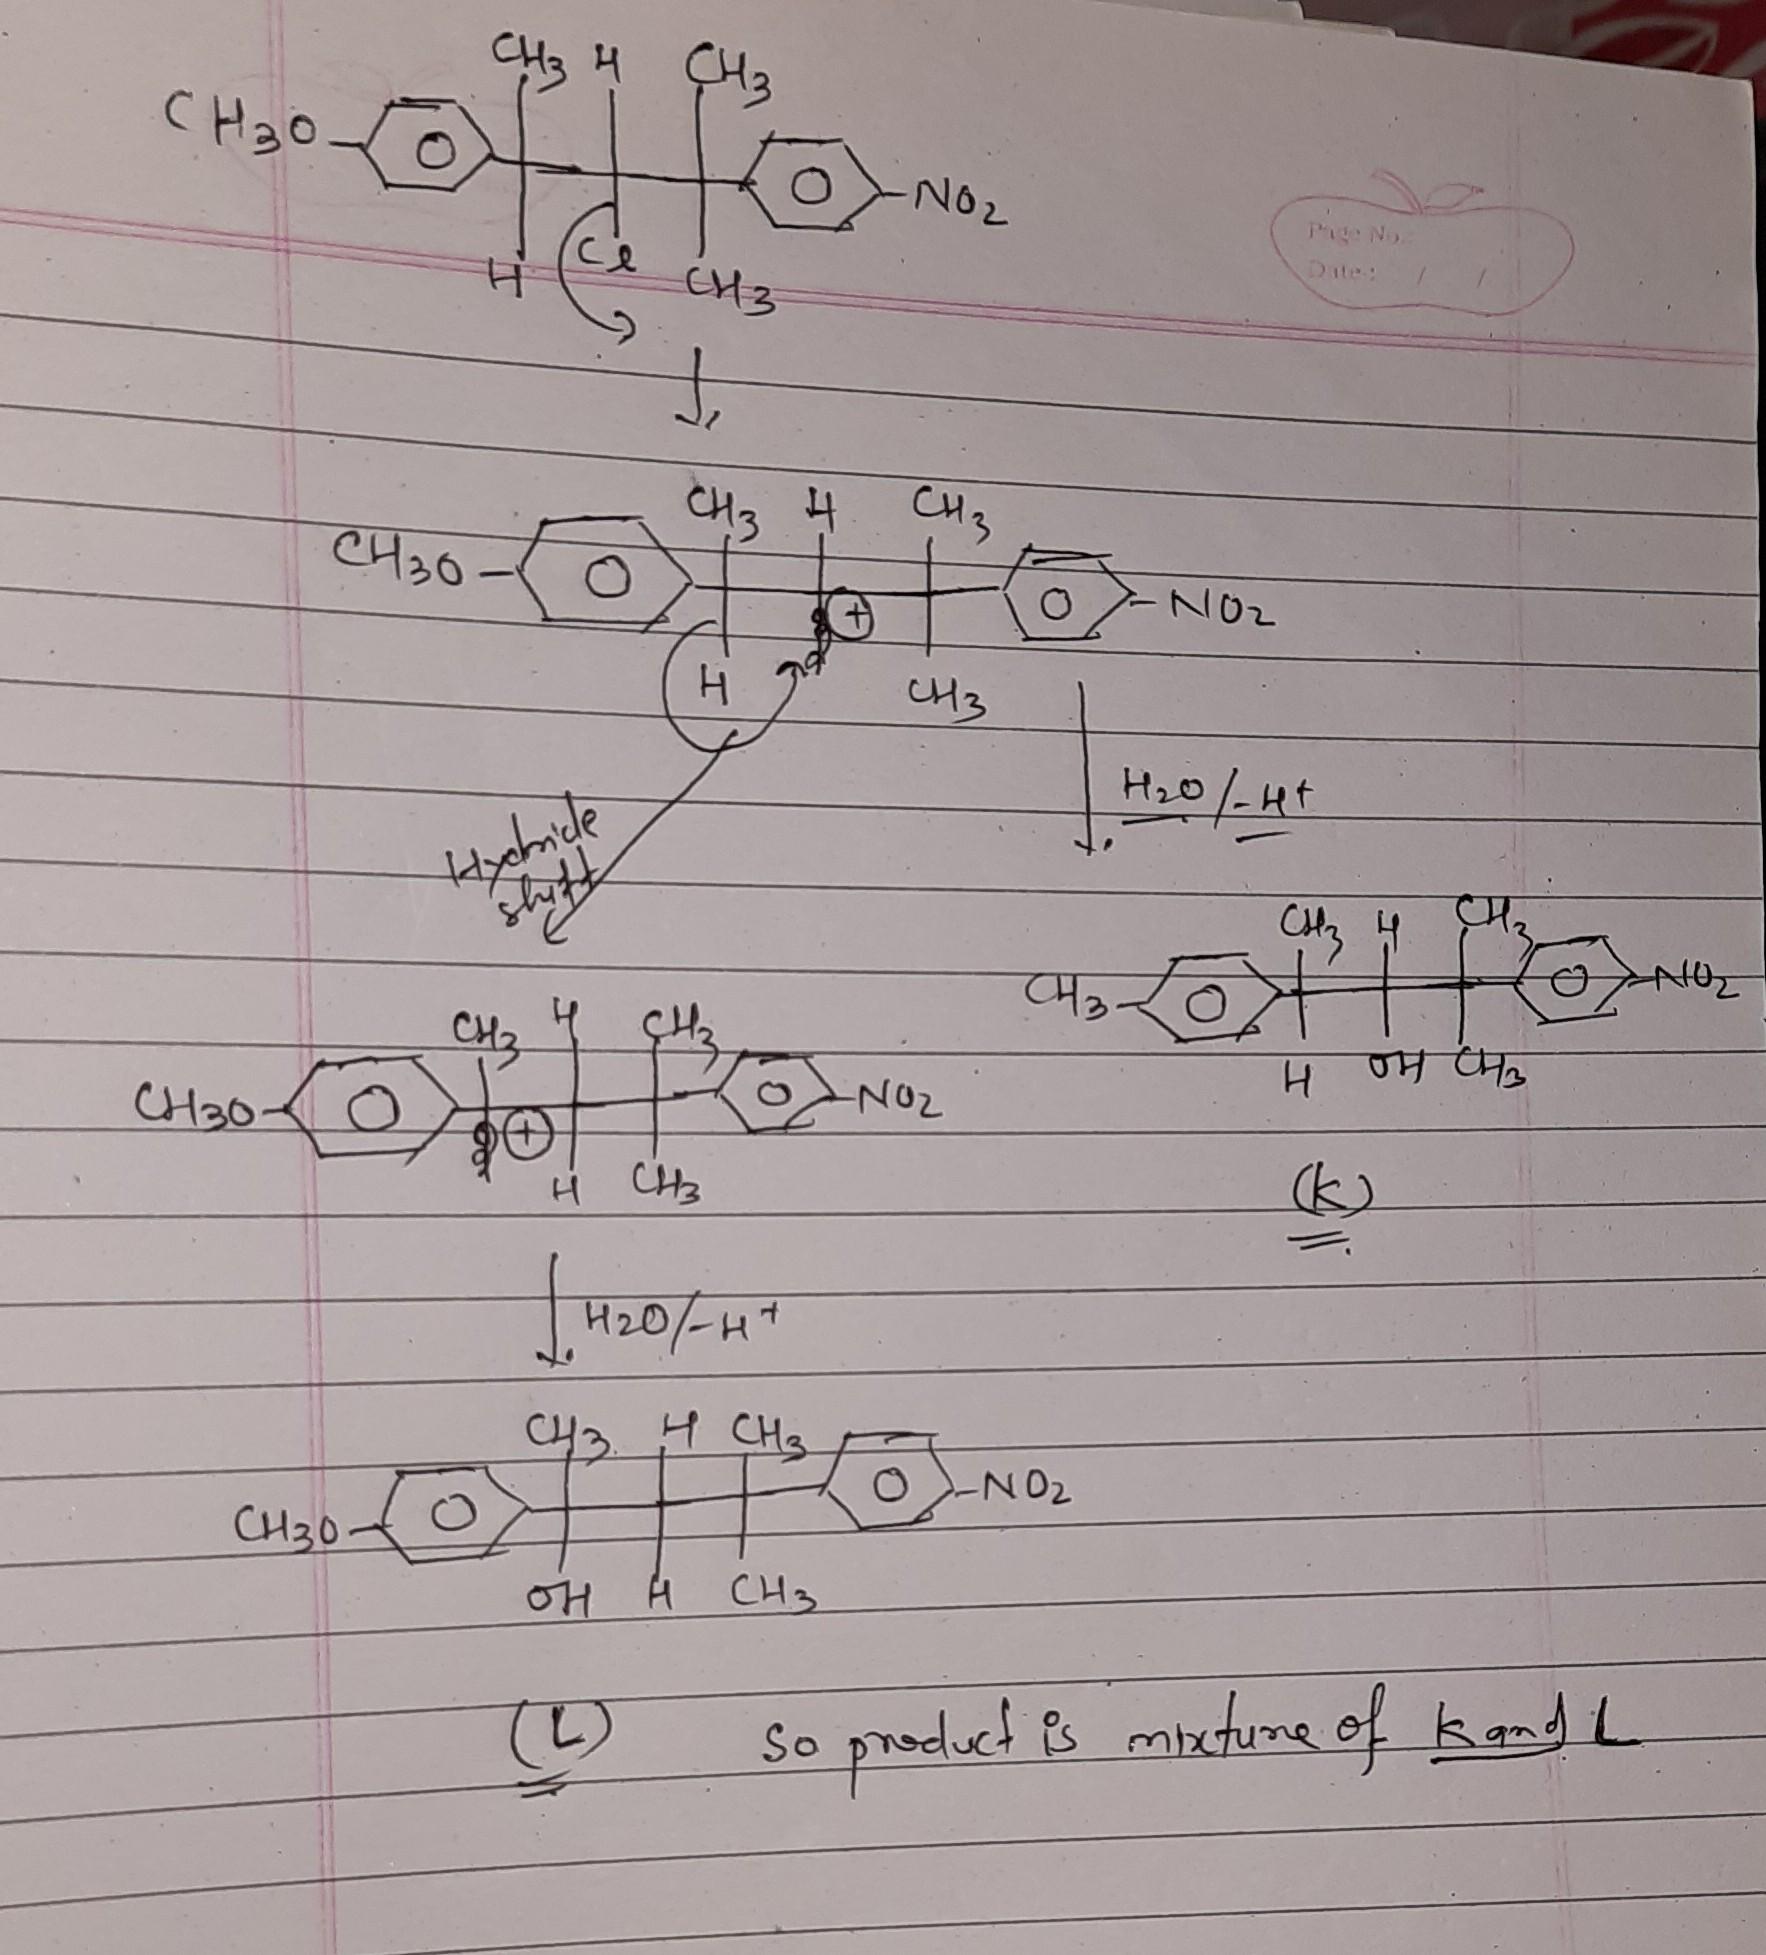 CH3 H CH3
CH3O
NO2
H Cl CH3
Page No.:
Date: / /
CH3 H CH3
CH3O
+
NO2
H CH3
Hydride
shift
H2O/-H+
CH3 H CH3
CH3
NO2
H OH CH3
(K)
CH3 H CH3
CH3O
+
NO2
H CH3
H2O/-H+
CH3 H CH3
CH3O
NO2
OH H CH3
(L)
So product is mixture of K and L